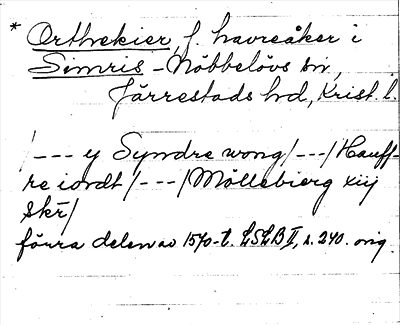 * Orthvekier, f. havreåker i
Simris - Nöbbelövs sn,
Järrestads hd, Krist. l.
/--- y Syndre wong/---/Hauff-
re iordt/---/Möllebierg xiij
Skr̄/
förra delen av 1570-t. LSLB II, s. 240. orig.